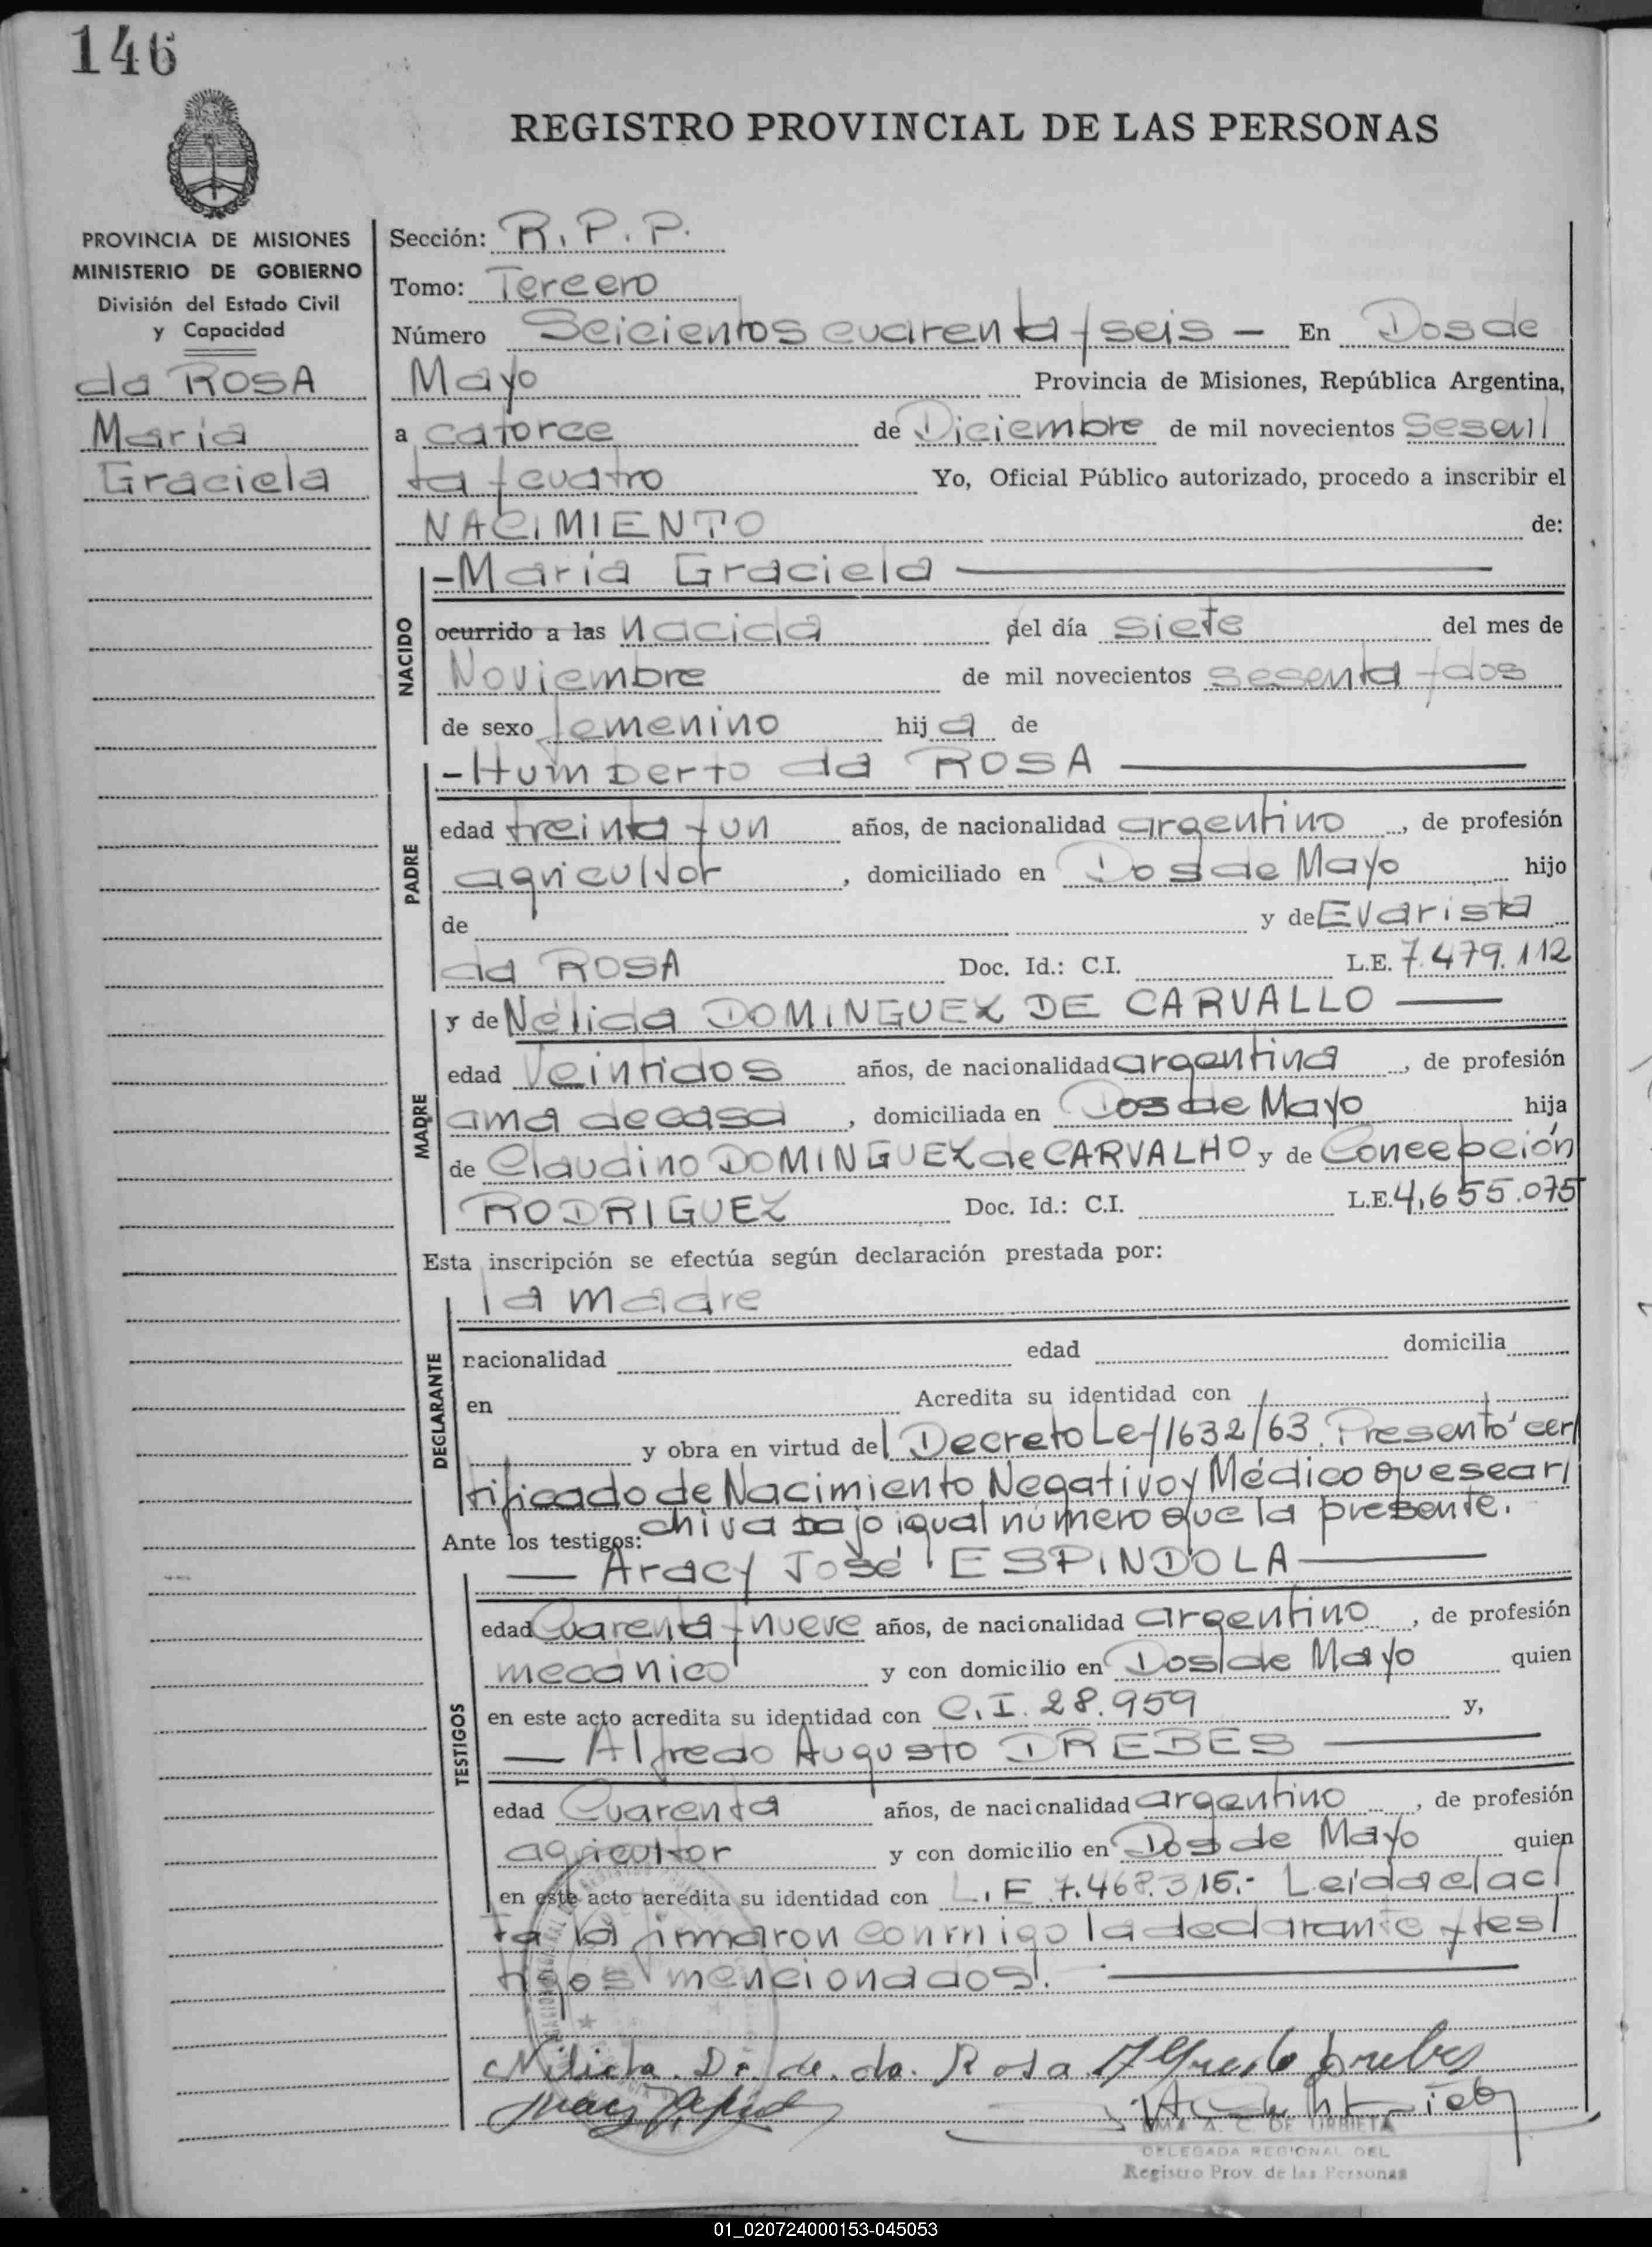 146
REGISTRO PROVINCIAL DE LAS PERSONAS
PROVINCIA DE MISIONES
MINISTERIO DE GOBIERNO
División del Estado Civil
y Capacidad
da ROSA
María
Graciela
Sección: R. P. P.
Tomo: Tercero
Número Seicientos cuarenta y seis — En Dos de
Mayo Provincia de Misiones, República Argentina,
a catorce de Diciembre de mil novecientos Sesen
ta y cuatro Yo, Oficial Público autorizado, procedo a inscribir el
NACIMIENTO de:
NACIDO
-María Graciela —
ocurrido a las nacida del día siete del mes de
Noviembre de mil novecientos sesenta y dos
de sexo femenino hij a de
PADRE
-Humberto da ROSA —
edad treinta y un años, de nacionalidad argentino, de profesión
agricultor, domiciliado en Dos de Mayo hijo
de y de Evarista
da ROSA Doc. Id.: C.I. L.E. 7.479.112
MADRE
y de Nélida DOMINGUEZ DE CARVALLO —
edad Veintidos años, de nacionalidad argentina, de profesión
ama de casa, domiciliada en Dos de Mayo hija
de Claudino DOMINGUEZ de CARVALHO y de Concepción
RODRIGUEZ Doc. Id.: C.I. L.E. 4,655.075
Esta inscripción se efectúa según declaración prestada por:
DECLARANTE
la madre
nacionalidad edad domicilia
en Acredita su identidad con
y obra en virtud del Decreto Ley 1632/63. Presentó cer
tificado de Nacimiento Negativo y Médico que se ar
chiva bajo igual número que la presente.
Ante los testigos:
TESTIGOS
— Aracy José ESPINDOLA —
edad Cuarenta y nueve años, de nacionalidad argentino, de profesión
mecánico y con domicilio en Dos de Mayo quien
en este acto acredita su identidad con C.I. 28.959 y,
— Alfredo Augusto DREBES —
edad Cuarenta años, de nacionalidad argentino, de profesión
agricultor y con domicilio en Dos de Mayo quien
en este acto acredita su identidad con L.E 7.468.315.- Leída el ac
ta la firmaron conmigo la declarante y tes
tigos mencionados. —
Nilida. D. de. da. Rosa Alfredo Drebes
A. C. DE URBIETA
DELEGADA REGIONAL DEL
Registro Prov. de las Personas
01_020724000153-045053